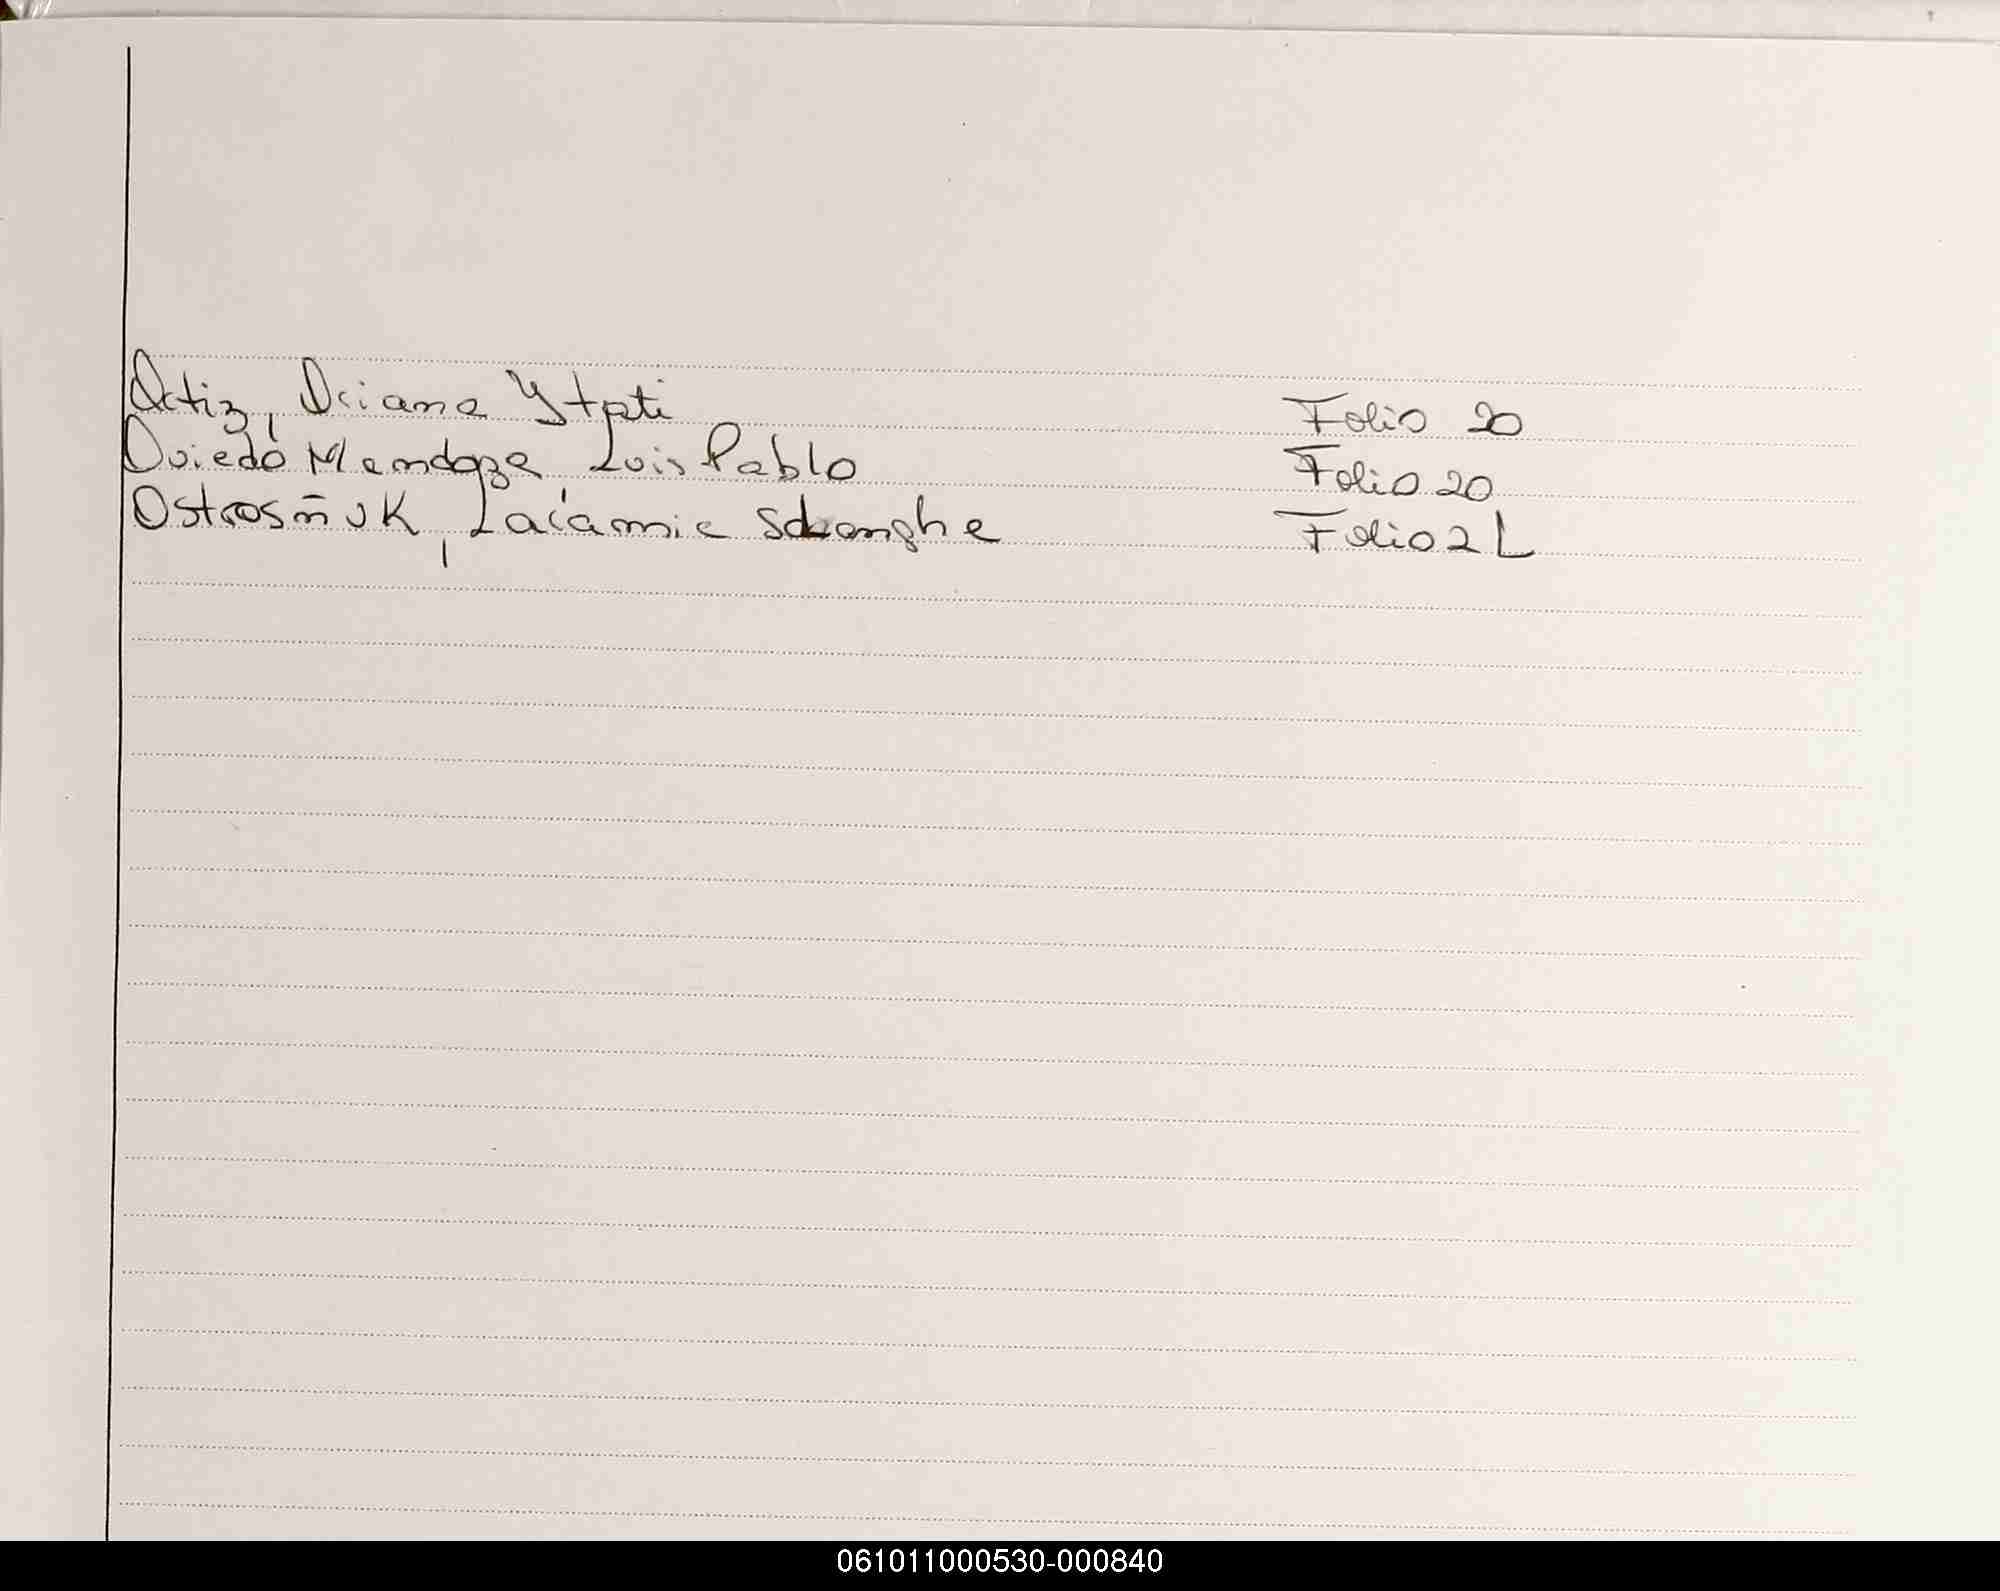 Ortiz, Oriana Ytati Folio 20
Oviedo Mendoza Luis Pablo Folio 20
Ostrosñuk, Folio 21
061011000530-000840